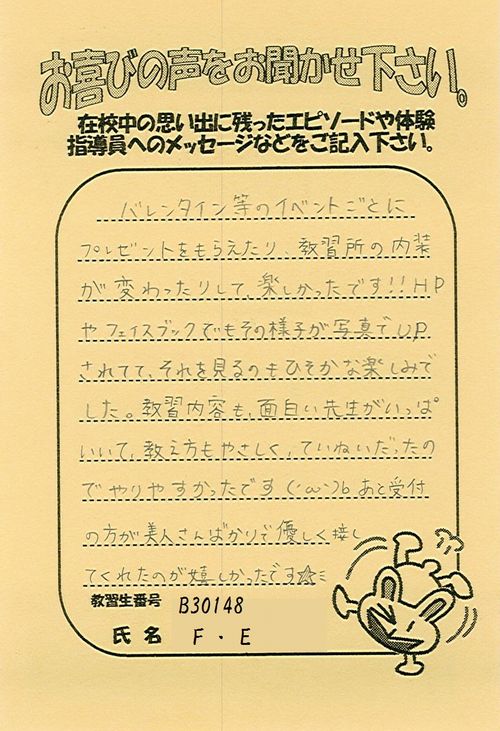 お喜びの声をお聞かせ下さい。
在校中の思い出に残ったエピソードや体験
指導員へのメッセージなどをご記入下さい。
バレンタイン等のイベントごとに
プレゼントをもらえたり、教習所の内装
が変わったりして、楽しかったです!!HP
やフェイスブックでもその様子が写真でUP
されてて、それを見るのもひそかな楽しみで
した。教習内容も、面白い先生がいっぱ
いいて、教え方もやさしく、ていねいだったの
でやりやすかったです(・ω・)b あと受付
の方が美人さんばかりで優しく接し
てくれたのが嬉しかったです☆ミ
教習生番号 B30148
氏名 F・E